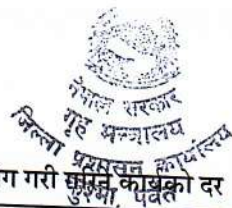 नेपाल सरकार
गृह मन्त्रालय
जिल्ला प्रशासन कार्यालय
पर्वत
ग गरी गरिने कार्यको दर